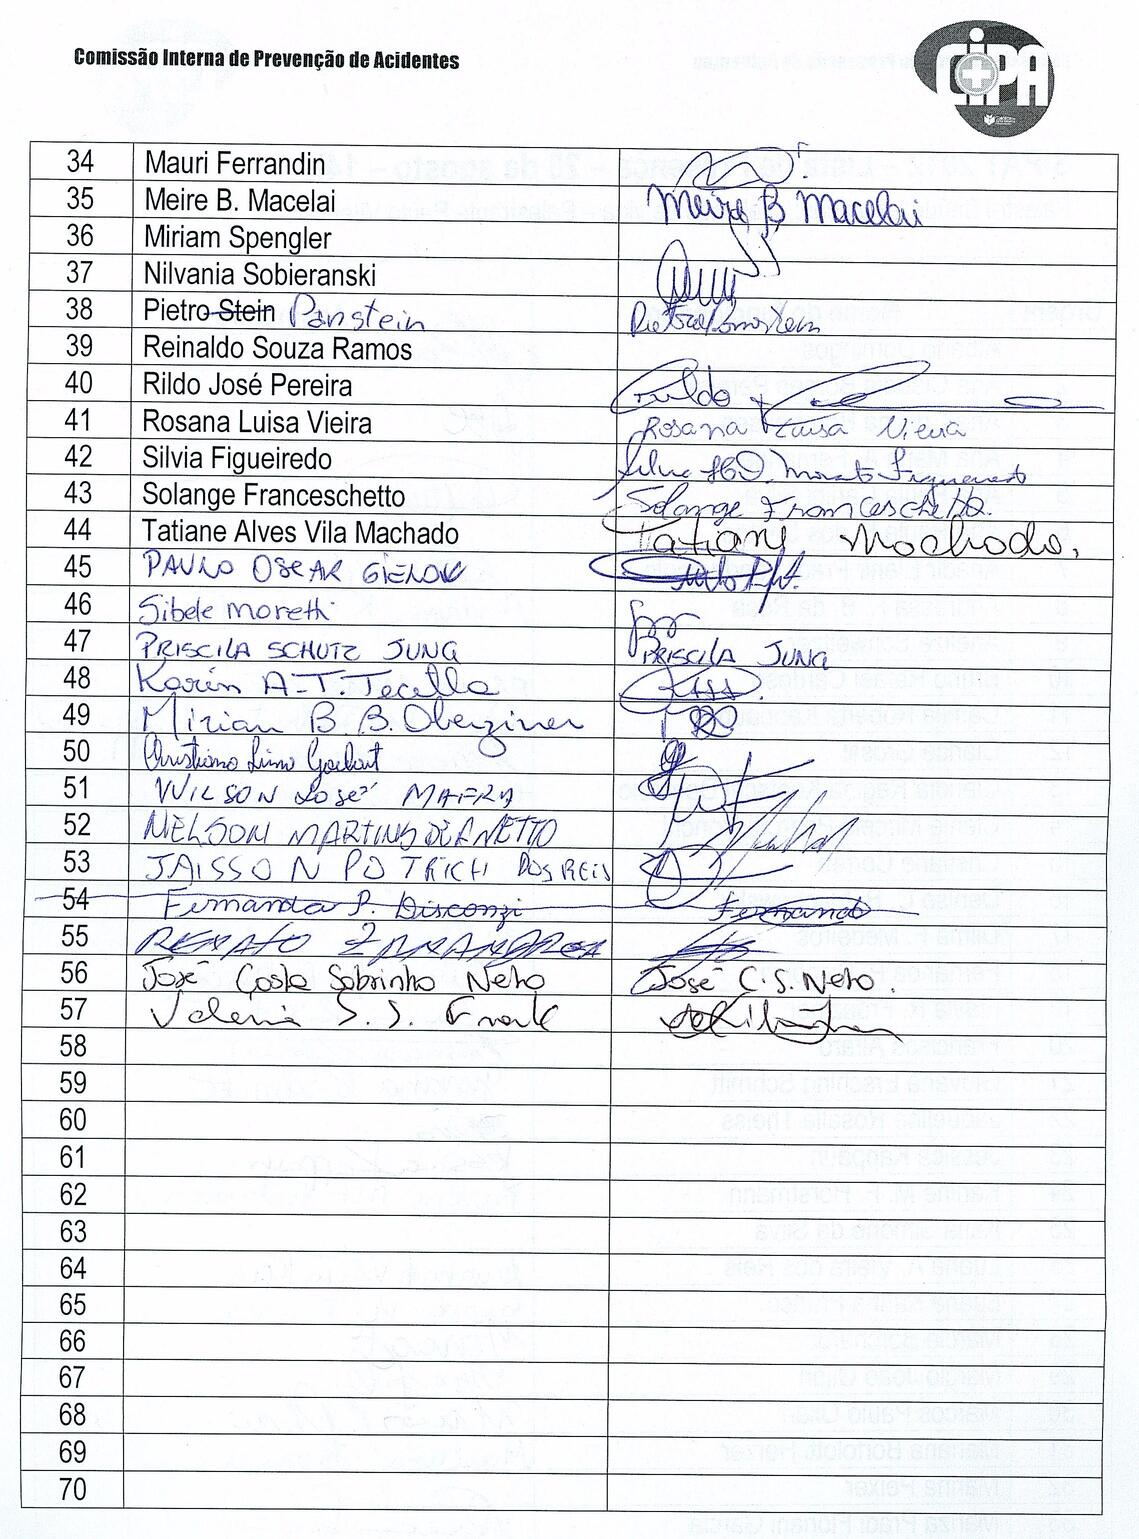 Comissão Interna de Prevenção de Acidentes
CIPA
34 Mauri Ferrandin
35 Meire B. Macelai Meire B Macelai
36 Miriam Spengler
37 Nilvania Sobieranski
38 Pietro Stein Panstein
39 Reinaldo Souza Ramos
40 Rildo José Pereira Rildo
41 Rosana Luisa Vieira Rosana Luisa Vieira
42 Silvia Figueiredo
43 Solange Franceschetto Solange Franceschetto.
44 Tatiane Alves Vila Machado Tatiane Machado.
45 PAULO OSCAR
46 Sibele Moretti
47 PRISCILA SCHUTZ JUNG PRISCILA JUNG
48 Karin A. T. Tecilla
49 Mirian B. B. Oberziner
50
51 WILSON José MAFRA
52 NELSON MARTINS
53 JAISSON POTRICH DOS REIS
54 Fernanda P. Disconzi Fernanda
55 RENATO
56 José Costa Sobrinho Neto José C. S. Neto.
57 Valeria S. S. Frank
58
59
60
61
62
63
64
65
66
67
68
69
70